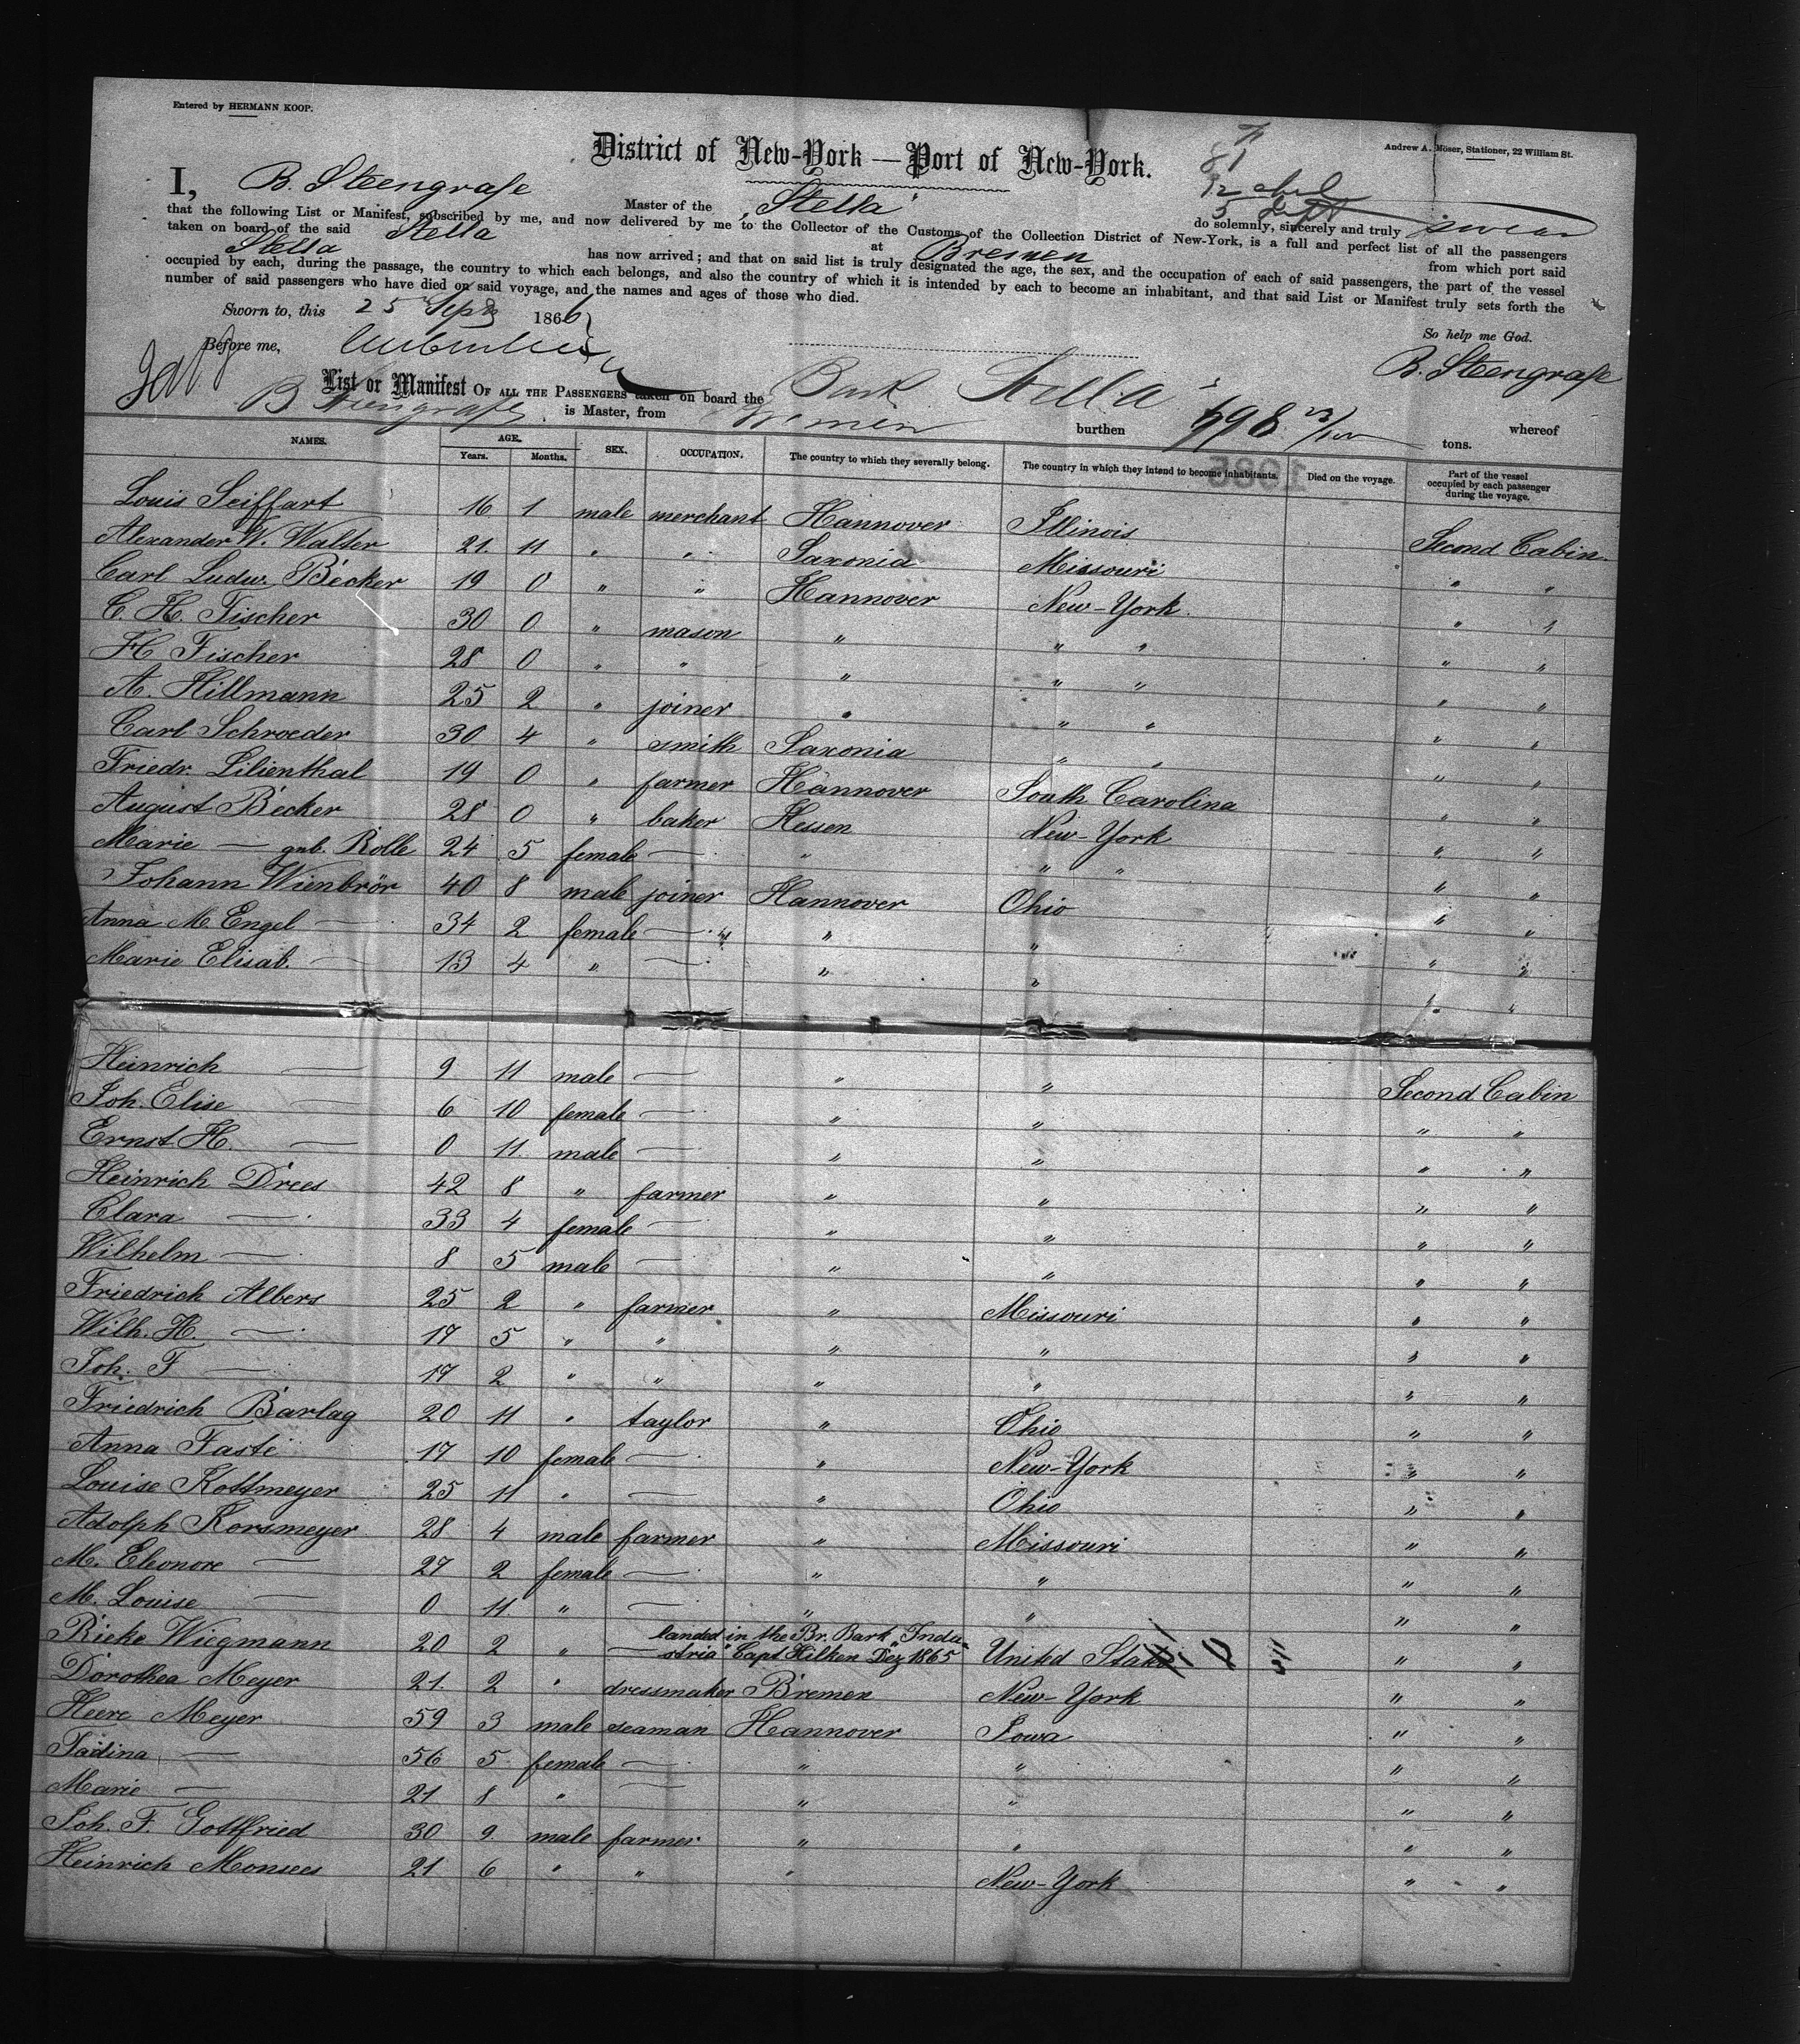 Entered by HERMANN KOOP.
Andrew A. Möser, Stationer, 22 William St.
District of New-York — Port of New-York.
I, B. Steengrafe Master of the „Stella" do solemnly, sincerely and truly swear
that the following List or Manifest, subscribed by me, and now delivered by me to the Collector of the Customs of the Collection District of New-York, is a full and perfect list of all the passengers
taken on board of the said Stella at Bremen from which port said
Stella has now arrived; and that on said list is truly designated the age, the sex, and the occupation of each of said passengers, the part of the vessel
occupied by each, during the passage, the country to which each belongs, and also the country of which it is intended by each to become an inhabitant, and that said List or Manifest truly sets forth the
number of said passengers who have died on said voyage, and the names and ages of those who died.
Sworn to, this 25 Sept 1866
So help me God.
Before me,
B. Steengrafe
List or Manifest OF ALL THE PASSENGERS taken on board the Bark Stella whereof
B. Steengrafe is Master, from Bremen burthen 698 23/100 tons.
NAMES. AGE. Years. Months. SEX. OCCUPATION. The country to which they severally belong. The country in which they intend to become inhabitants. Died on the voyage. Part of the vessel occupied by each passenger during the voyage.
Louis Seiffart 16 1 male merchant Hannover Illinois Second Cabin
Alexander W. Walter 21 11 " " Saxonia Missouri " "
Carl Ludw. Becker 19 0 " " Hannover New-York " "
C. H. Fischer 30 0 " mason " " " " "
H Fischer 28 0 " " " " " " "
A. Hillmann 25 2 " joiner " " " " "
Carl Schroeder 30 4 " smith Saxonia " " " "
Friedr. Lilienthal 19 0 " farmer Hannover South Carolina " "
August Becker 28 0 " baker Hessen New-York " "
Marie — geb. Rolle 24 5 female — " " " " "
Johann Wienbrör 40 8 male joiner Hannover Ohio " "
Anna M. Engel — 34 2 female — " " " "
Marie Elisab. — 13 4 " — " " " "
Heinrich — 9 11 male — " " Second Cabin
Joh. Elise — 6 10 female — " " " "
Ernst H. — 0 11 male — " " " "
Heinrich Drees 42 8 " farmer " " " "
Clara — 33 4 female — " " " "
Wilhelm — 8 5 male — " " " "
Friedrich Albers 25 2 " farmer " Missouri " "
Wilh. H. — 17 5 " " " " " "
Joh. F — 17 2 " " " " " "
Friedrich Barlag 20 11 " taylor " Ohio " "
Anna Faste 17 10 female — " New-York " "
Louise Kottmeyer 25 11 " — " Ohio " "
Adolph Korsmeyer 28 4 male farmer " Missouri " "
M. Eleonore — 27 2 female — " " " "
M. Louise — 0 11 " — " " " "
Rieke Wiegmann 20 2 " — landed in the Br. Bark „Indu-
stria" Capt Hilken Dez 1865 United States " "
Dorothea Meyer 21 2 " dressmaker Bremen New-York " "
Heere Meyer 59 3 male seaman Hannover Iowa " "
Tadina — 56 5 female — " " " "
Marie — 21 8 " — " " " "
Joh. F. Gottfried 30 9 male farmer " " " "
Heinrich Monsees 21 6 " " " New-York " "